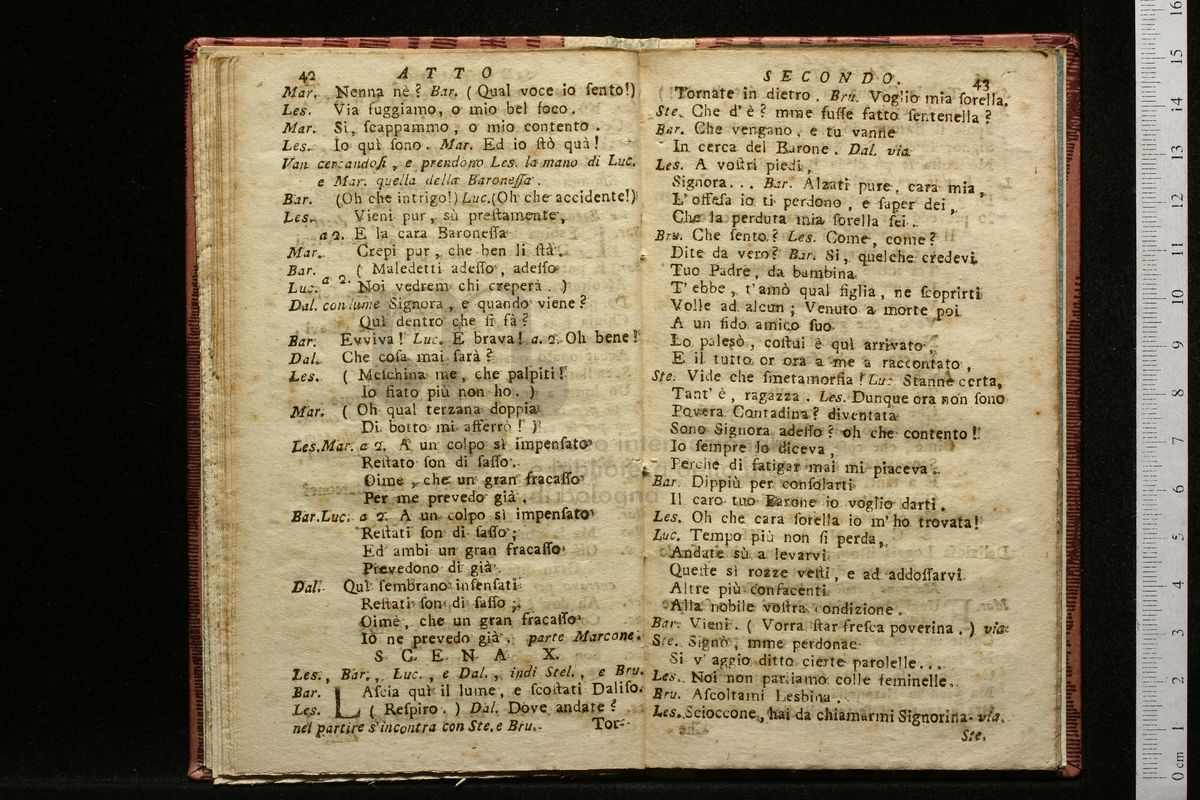 42 ATTO
Mar. Nenna nè? Bar. (Qual voce io ſento!)
Les. Via fuggiamo, o mio bel foco.
Mar. Sì, ſcappammo, o mio contento.
Les. Io quì ſono. Mar. Ed io ſtò quà!
Van cercandoſi, e prendono Les. la mano di Luc.
e Mar. quella della Baroneſſa.
Bar. (Oh che intrigo!) Luc. (Oh che accidente!)
Les. Vieni pur, sù preſtamente,
a 2. E la cara Baroneſſa
Mar. Crepi pur, che ben li ſtà.
Bar. ( Maledetti adeſſo, adeſſo
Luc. a 2. Noi vedrem chi creperà. )
Dal. con lume Signora, e quando viene?
Quì dentro che ſi fà?
Bar. Evviva! Luc. E brava! a. 2. Oh bene!
Dal. Che coſa mai ſarà?
Les. ( Meſchina me, che palpiti!
Io fiato più non ho. )
Mar. ( Oh qual terzana doppia
Di botto mi afferrò! )
Les.Mar. a 2. A un colpo sì impenſato
Reſtato ſon di ſaſſo.
Oimè, che un gran fracaſſo
Per me prevedo già.
Bar.Luc. a 2. A un colpo sì impenſato
Reſtati ſon di ſaſſo;
Ed ambi un gran fracaſſo
Prevedono di già.
Dal. Quì ſembrano inſenſati
Reſtati ſon di ſaſſo;
Oimè, che un gran fracaſſo
Io ne prevedo già. parte Marcone.
SCENA X.
Les., Bar., Luc., e Dal., indi Stel., e Bru.
Bar. LAſcia quì il lume, e ſcoſtati Daliſo.
Les. ( Reſpiro. ) Dal. Dove andate?
nel partire s'incontra con Ste. e Bru. Tor-
SECONDO. 43
Tornate in dietro. Bru. Voglio mia ſorella.
Ste. Che d'è? mme fuſſe fatto ſentenella?
Bar. Che vengano, e tu vanne
In cerca del Barone. Dal. via
Les. A voſtri piedi,
Signora... Bar. Alzati pure, cara mia,
L'offeſa io ti perdono, e ſaper dei,
Che la perduta mia ſorella ſei.
Bru. Che ſento? Les. Come, come?
Dite da vero? Bar. Sì, quelche credevi
Tuo Padre, da bambina
T'ebbe, t'amò qual figlia, ne ſcoprirti
Volle ad alcun; Venuto a morte poi
A un fido amico ſuo
Lo palesò, coſtui è quì arrivato
E il tutto or ora a me a raccontato,
Ste. Vide che ſmetamorfia! Luc. Stanne certa,
Tant'è, ragazza. Les. Dunque ora non ſono
Povera Contadina? diventata
Sono Signora adeſſo? oh che contento!
Io ſempre lo diceva,
Perche di fatigar mai mi piaceva.
Bar. Dippiù per conſolarti
Il caro tuo Barone io voglio darti.
Les. Oh che cara ſorella io m'ho trovata!
Luc. Tempo più non ſi perda,
Andate sù a levarvi
Queſte sì rozze veſti, e ad addoſſarvi
Altre più confacenti
Alla nobile voſtra condizione.
Bar. Vieni. ( Vorra ſtar freſca poverina. ) via
Ste. Signò, mme perdonae
Si v'aggio ditto cierte parolelle...
Les. Noi non parliamo colle feminelle.
Bru. Aſcoltami Lesbina.
Les. Scioccone, hai da chiamarmi Signorina. via.
Ste.
0 cm 1 2 3 4 5 6 7 8 9 10 11 12 13 14 15 16